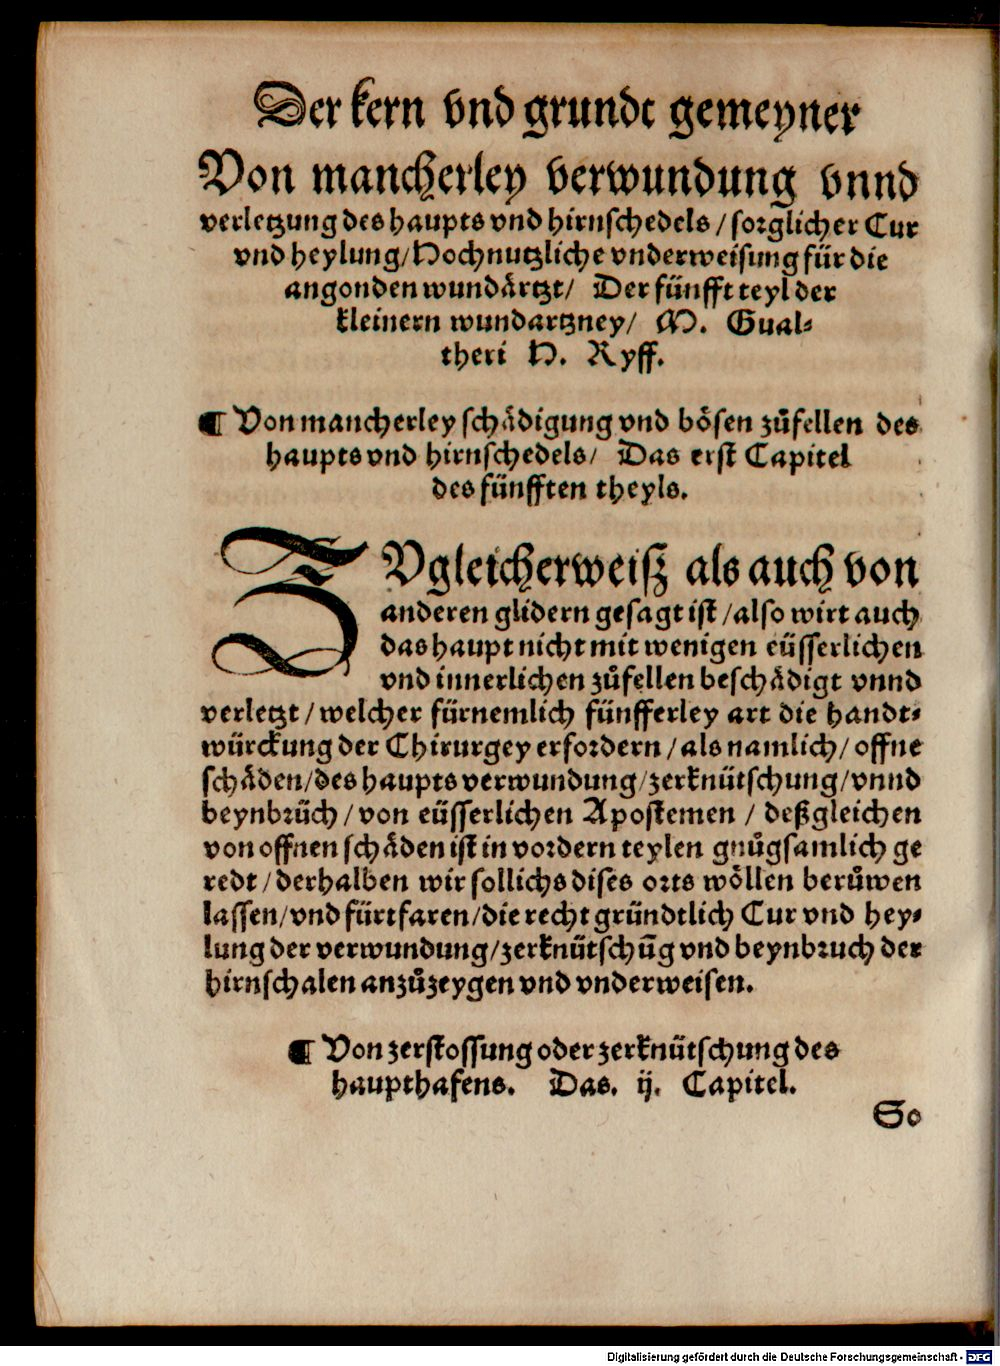 Der kern vnd grundt gemeyner
Von mancherley verwundung vnnd
verletzung des haupts vnd hirnschedels / sorglicher Cur
vnd heylung/Hochnutzliche vnderweisung für die
angonden wundaͤrtzt/ Der fünfft teyl der
kleinern wundartzney/ M. Gual⸗
theri H. Ryff.
¶ Von mancherley schaͤdigung vnd boͤsen zuͦfellen des
haupts vnd hirnschedels/ Das erst Capitel
des fünfften theyls.
ZVgleicherweisz als auch von
anderen glidern gesagt ist /also wirt auch
das haupt nicht mit wenigen eüsserlichen
vnd innerlichen zuͦfellen beschaͤdigt vnnd
verletzt /welcher fürnemlich fünfferley art die handt⸗
würckung der Chirurgey erfordern /als namlich/ offne
schaͤden/des haupts verwundung/zerknütschung/vnnd
beynbrüch /von eüsserlichen Apostemen / deßgleichen
von offnen schaͤden ist in vordern teylen gnuͦgsamlich ge
redt /derhalben wir sollichs dises orts woͤllen beruͦwen
lassen/vnd fürtfaren/die recht gründtlich Cur vnd hey⸗
lung der verwundung/zerknütschūg vnd beynbruch der
hirnschalen anzuͦzeygen vnd vnderweisen.
¶ Von zerstossung oder zerknütschung des
haupthafens. Das. ij. Capitel.
So
Digitalisierung gefördert durch die Deutsche Forschungsgemeinschaft - DFG